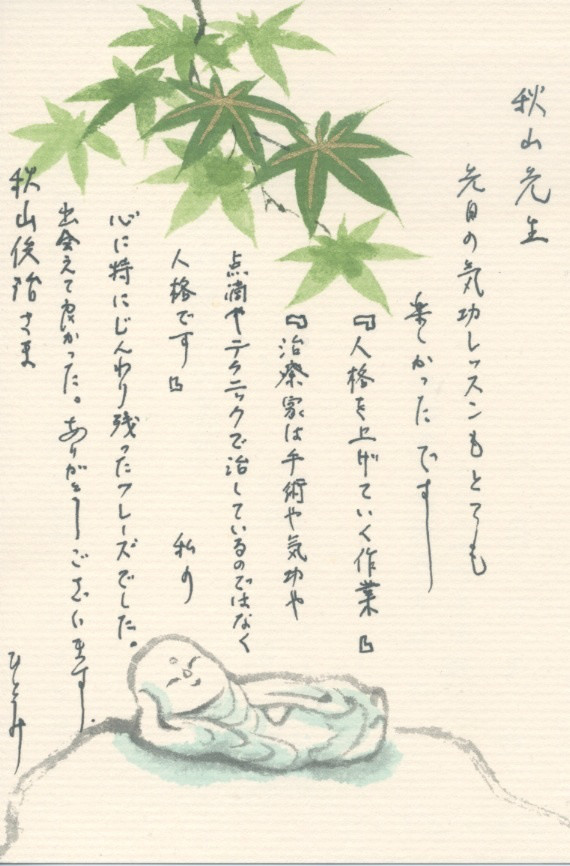 秋山先生
先日の気功レッスンもとても
楽しかったです
『人格を上げていく作業』
『治療家は手術や気功や
点滴やテクニックで治しているのではなく
人格です』 私の
心に特にじんわり残ったフレーズでした。
出会えて良かった。ありがとうございます。
秋山俊治さま
ひとみ